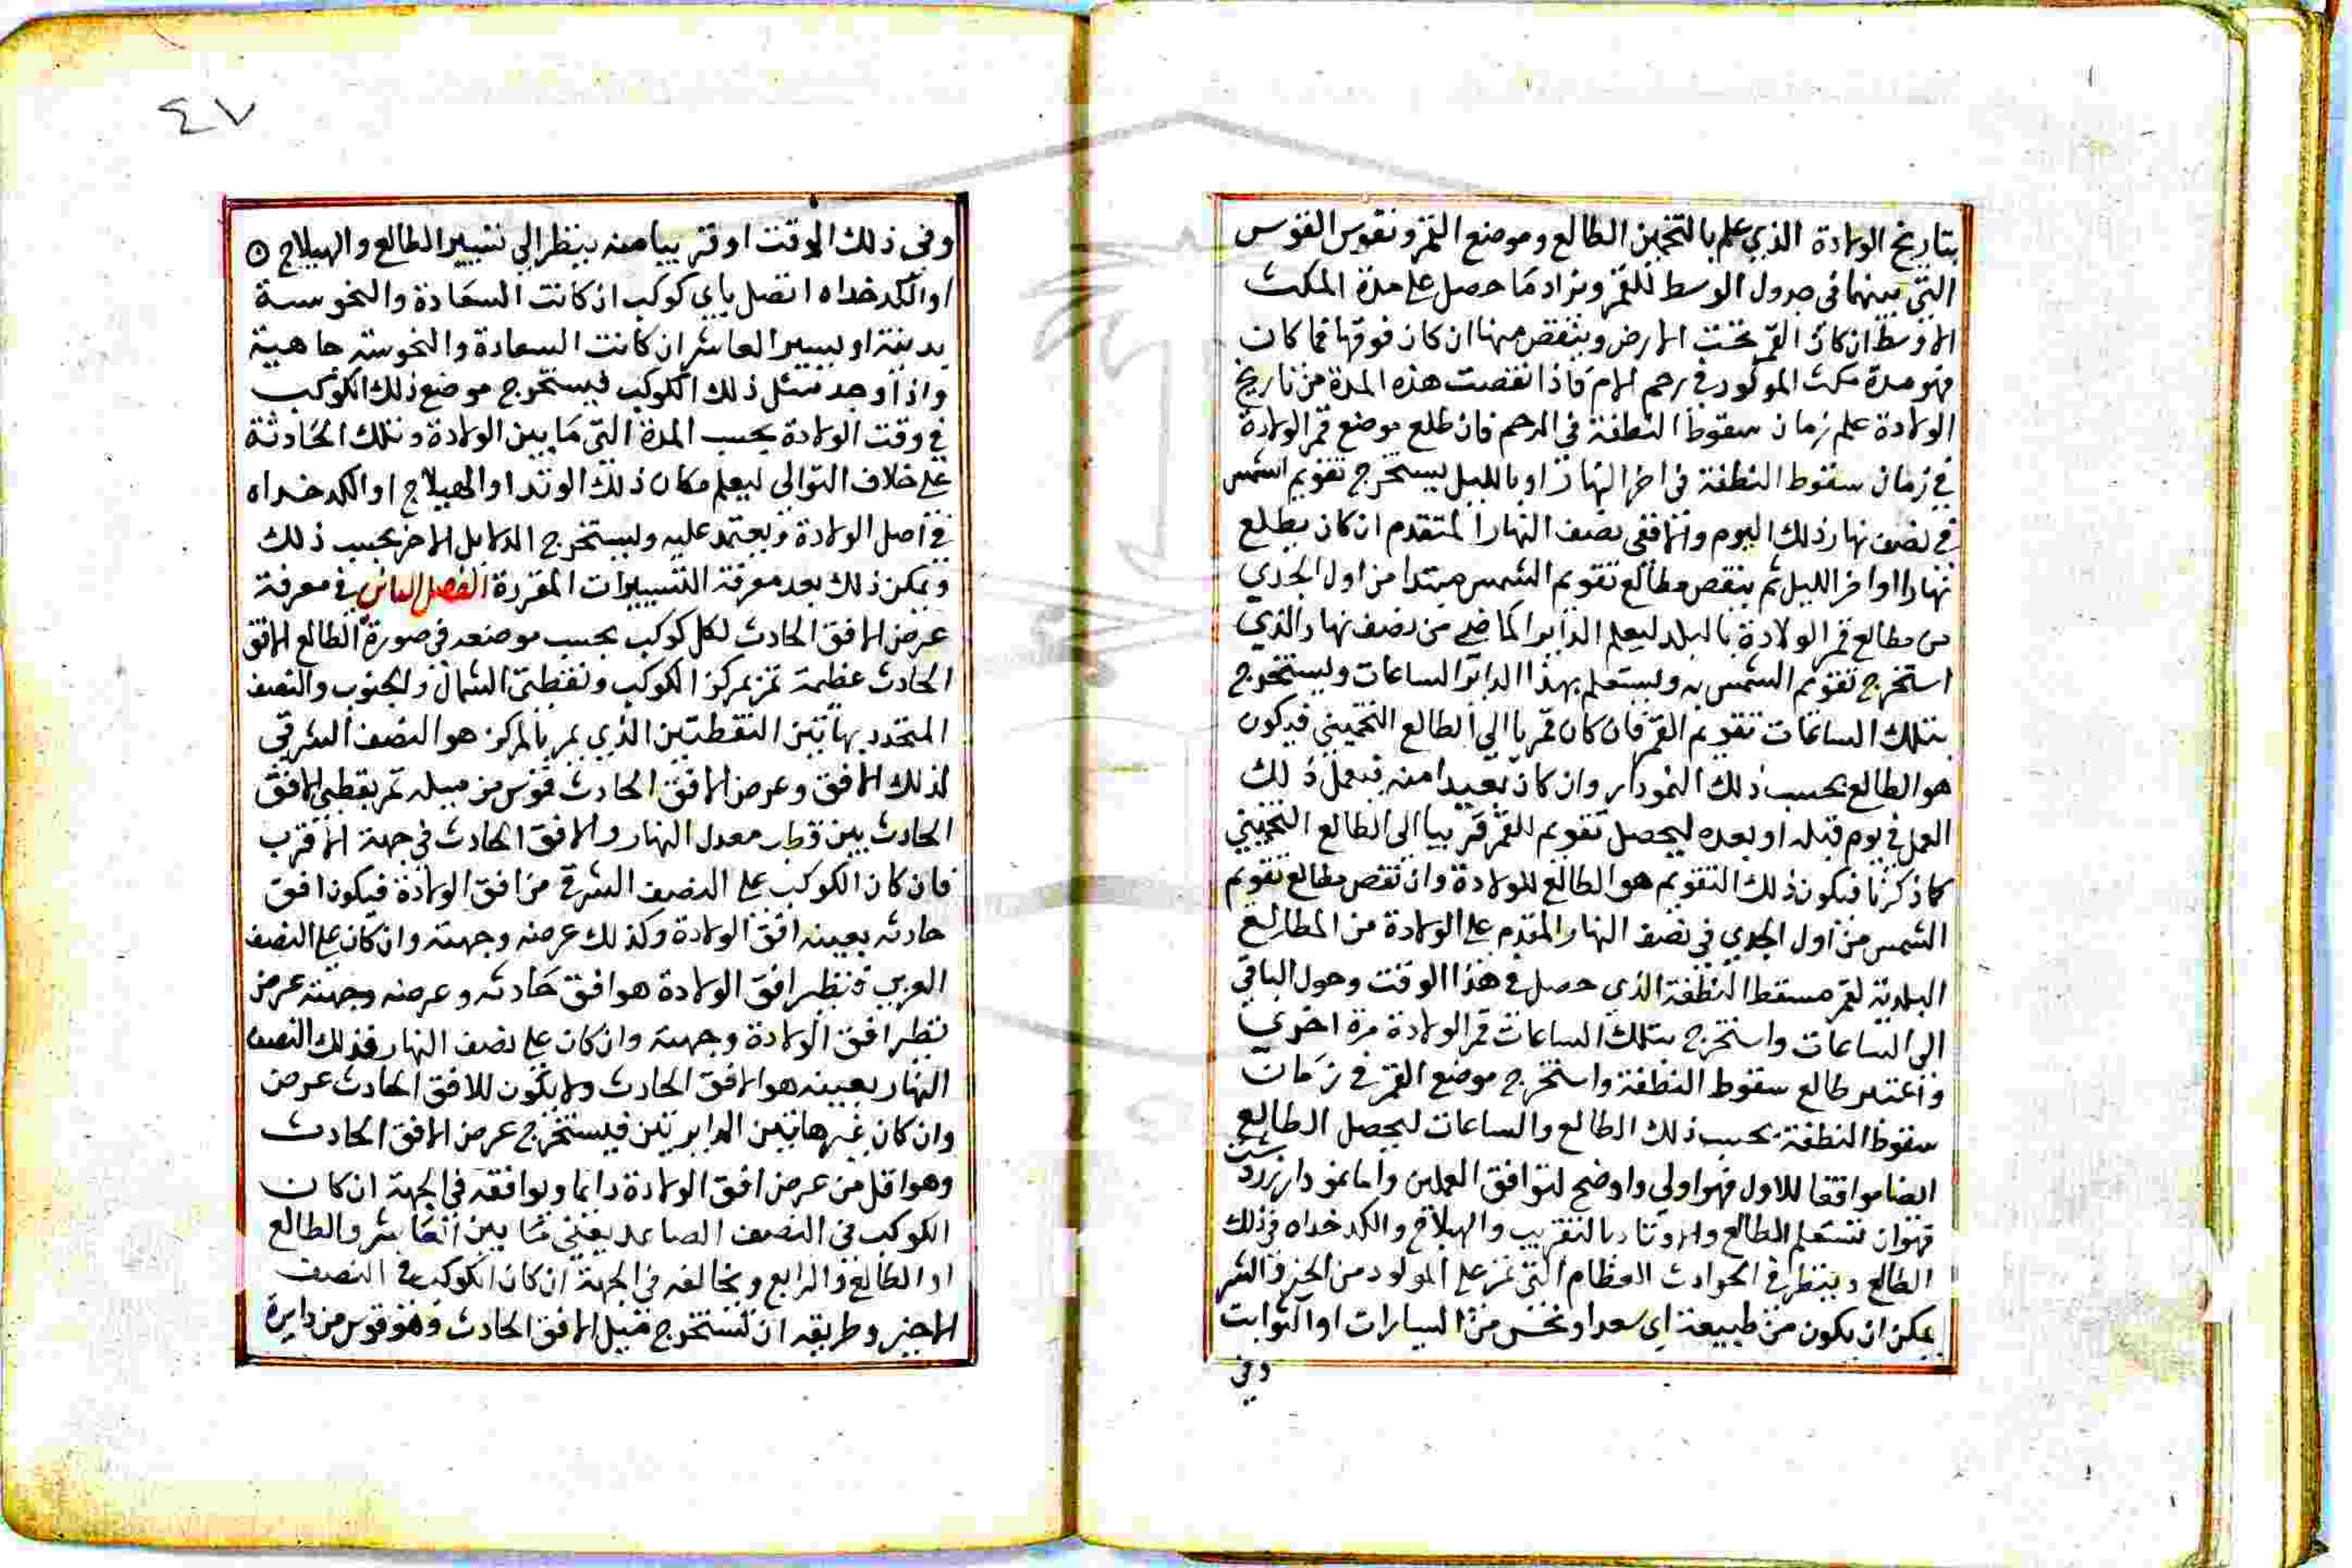 بتاريخ الولادة الذي علم بالتخمين الطالع وموضع القمر ونقوس القوس
التي بينهما في جدول الوسط للقمر ونزاد ما حصل على مدة المكث
الاوسط ان كان القمر تحت الارض وينقص منها ان كان فوقها فما كان
فهو مدة مكث المولود في رحم الام فاذا نقصت هذه المدة من تاريخ
الولادة علم زمان سقوط النطفة في الرحم فان طلع موضع قمر الولادة
في زمان سقوط النطفة في اخر النهار او بالليل يستخرج تقويم الشمس
في نصف نهار ذلك اليوم والا ففي نصف النهار المتقدم ان كان يطلع
نهارا او اخر الليل ثم ينقص مطالع تقويم الشمس مبتدا من اول الجدي
من مطالع قمر الولادة بالبلد ليعلم الداير الماضي من نصف نهار الذي
استخرج تقويم الشمس به وليستعلم بهذا الداير الساعات وليستخرج
بتلك الساعات تقويم القمر فان كان قمر با الى الطالع التخميني فيكون
هو الطالع بحسب ذلك النمودار وان كان بعيدا منه فيعمل ذلك
العمل في يوم قبله او بعده ليحصل تقويم للقمر قريبا الى الطالع التخميني
كما ذكرنا فيكون ذلك التقويم هو الطالع للولادة وان نقص مطالع تقويم
الشمس من اول الجدي في نصف النهار المقدم على الولادة من المطالع
البلدية لقمر مسقط النطفة الذي حصل في هذا الوقت وحول الباقي
الى الساعات واستخرج بتلك الساعات قمر الولادة مرة اخري
واعتبر طالع سقوط النطفة واستخرج موضع القمر في زمان
سقوط النطفة بحسب ذلك الطالع والساعات ليحصل الطالع
ايضا موافقا للاول فهو اولي واوضح لتوافق العملين واما نمودار زردشت
فهو ان تستعلم الطالع والاوتاد بالتقريب والهيلاج والكدخداه في ذلك
الطالع وينظر في الحوادث العظام التي تمر على المولود من الخير والشر
يمكن ان يكون من طبيعة اي سعد او نحس من السيارات او الثوابت
وفي
٤٧
وفي ذلك الوقت او قريبا منه ينظر الي تسيير الطالع والهيلاج
او الكدخداه اتصل باي كوكب ان كانت السعادة والنحوسة
بدنية او بسيير العاشر ان كانت السعادة والنحوسة جاهية
واذا وجد مثل ذلك الكوكب فيستخرج موضع ذلك الكوكب
في وقت الولادة بحسب المدة التي ما بين الولادة وتلك الحادثة
على خلاف التوالي ليعلم مكان ذلك الوتد او الهيلاج او الكدخداه
في اصل الولادة ويعتمد عليه وليستخرج الدلايل الاخر بحسب ذلك
ويمكن ذلك بعد معرفة التسييرات المقررة الفصل العاشر في معرفة
عرض الافق الحادث لكل كوكب بحسب موضعه في صورة الطالع الافق
الحادث عظيمة تمر بمركز الكوكب ونقطتي الشمال والجنوب والنصف
المتحدد بهاتين النقطتين الذي يمر بالمركز هو النصف الشرقي
لذلك الافق وعرض الافق الحادث قوس من ميله تمر بقطبي الافق
الحادث بين قطب معدل النهار والافق الحادث في جهة الاقرب
فان كان الكوكب على النصف الشرقي من افق الولادة فيكون افق
حادثه بعينه افق الولادة وكذلك عرضه وجهته وان كان على النصف
الغربي فنظير افق الولادة هو افق حادثه وعرضه وجهته عرض
نظير افق الولادة وجهته وان كان على نصف النهار فذلك النصف
النهار بعينه هو الافق الحادث ولا يكون للافق الحادث عرض
وان كان غير هاتين الدايرتين فيستخرج عرض الافق الحادث
وهو اقل من عرض افق الولادة دايما ويوافقه في الجهة ان كان
الكوكب في النصف الصاعد يعني ما بين العاشر والطالع
او الطالع والرابع ويخالفه في الجهة ان كان الكوكب في النصف
الاخير وطريقه ان تستخرج ميل الافق الحادث وهو قوس من دايرة